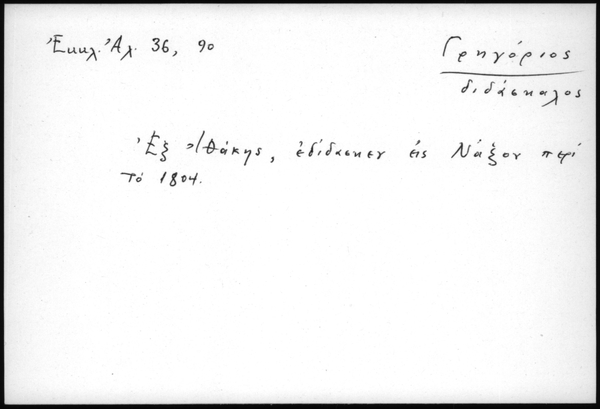 Ἐκκλ. Ἀλ. 36, 90
Γρηγόριος
διδάσκαλος
Ἐξ Ἰθάκης, ἐδίδασκεν εἰς Νάξον περί
τό 1804.